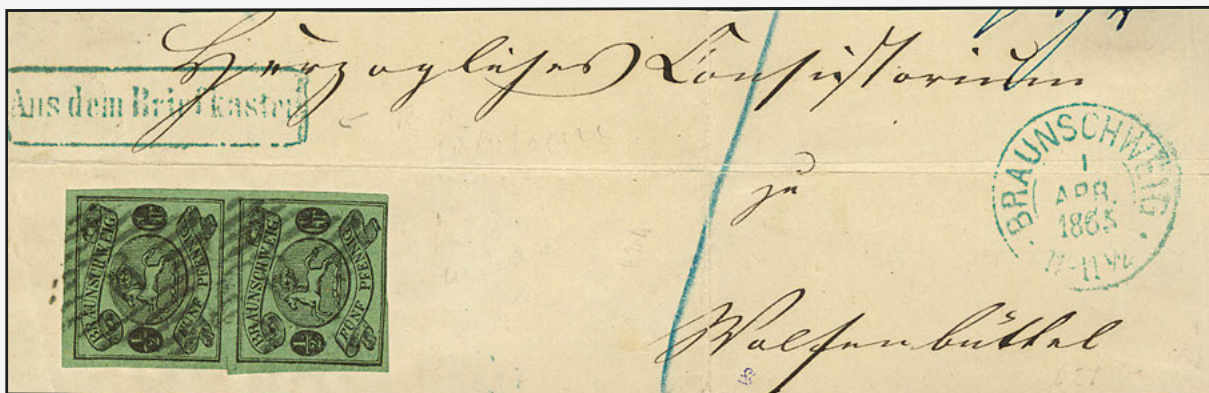 Herzogliches Consistorium
Aus dem Briefkasten
zu
BRAUNSCHWEIG
1
APR.
1865
Wolfenbüttel
BRAUNSCHWEIG
FÜNF PFENNIG
1/2
BRAUNSCHWEIG
FÜNF PFENNIG
1/2